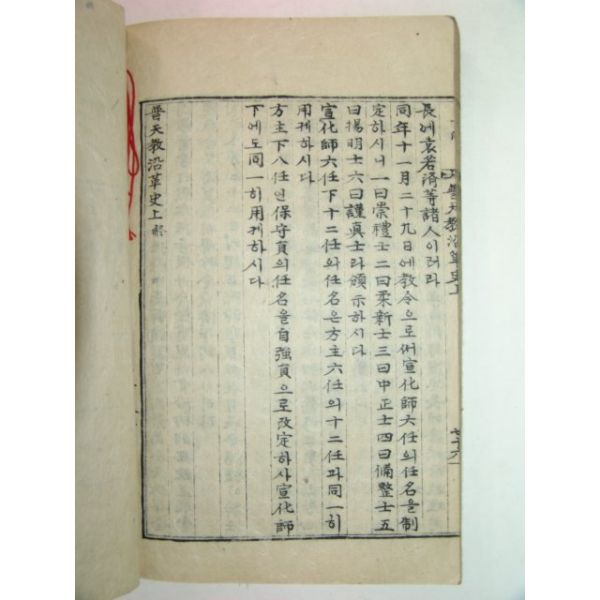 普天教沿革史上
長에袁若済等諸人이러라
同年十一月二十九日에教令으로써宣化師六任의任名을制
定하시니一曰崇禮士二曰柔新士三曰中正士四曰備整士五
曰揚明士六曰謹真士라頒示하시다
宣化師六任下十二任의任名은方主六任의十二任과同一히
用케하시다
方主下八任인保守員의任名을自強員으로改定하사宣化師
下에도同一히用케하시다
普天教沿革史上終